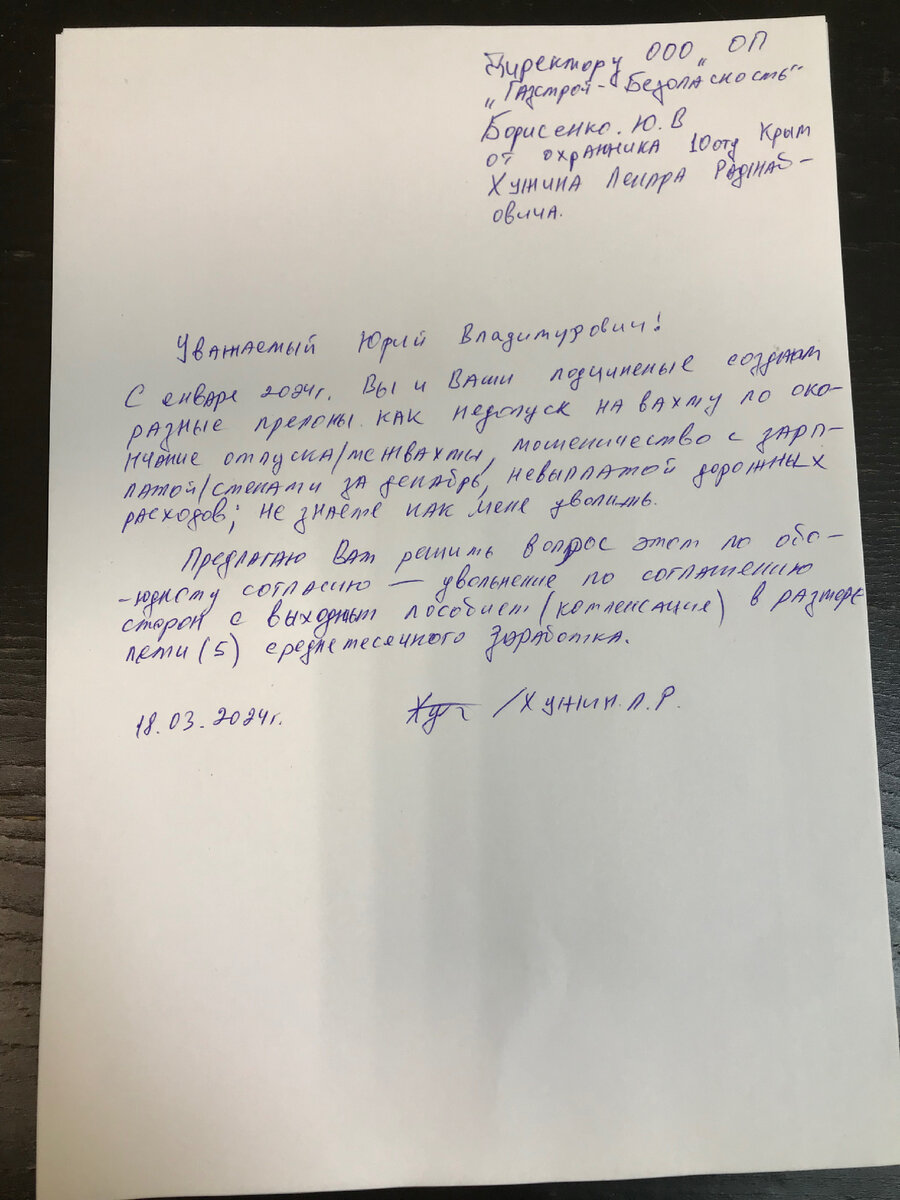 Директору ООО „ ОП
„Газстрой - Безопасность"
Борисенко. Ю. В
от охранника 10отд Крым
Хужина Ленара Раджаб-
овича.
Уважаемый Юрий Владимирович!
С енваре 2024г. Вы и Ваши подчиненые создают
разные препоны как недопуск на вахту по око-
нчание отпуска/межвахты, мошеничество с зарп-
латой/сменами за декабрь, невыплатой дорожных
расходов; не знаете как мене уволить.
Предлагаю Вам решить вопрос этот по обо-
-юдному согласию — увольнение по соглашению
сторон с выходным пособием (компенсация) в размере
пяти (5) среднемесячного заработка.
18.03.2024г.
/Хужин.Л.Р.